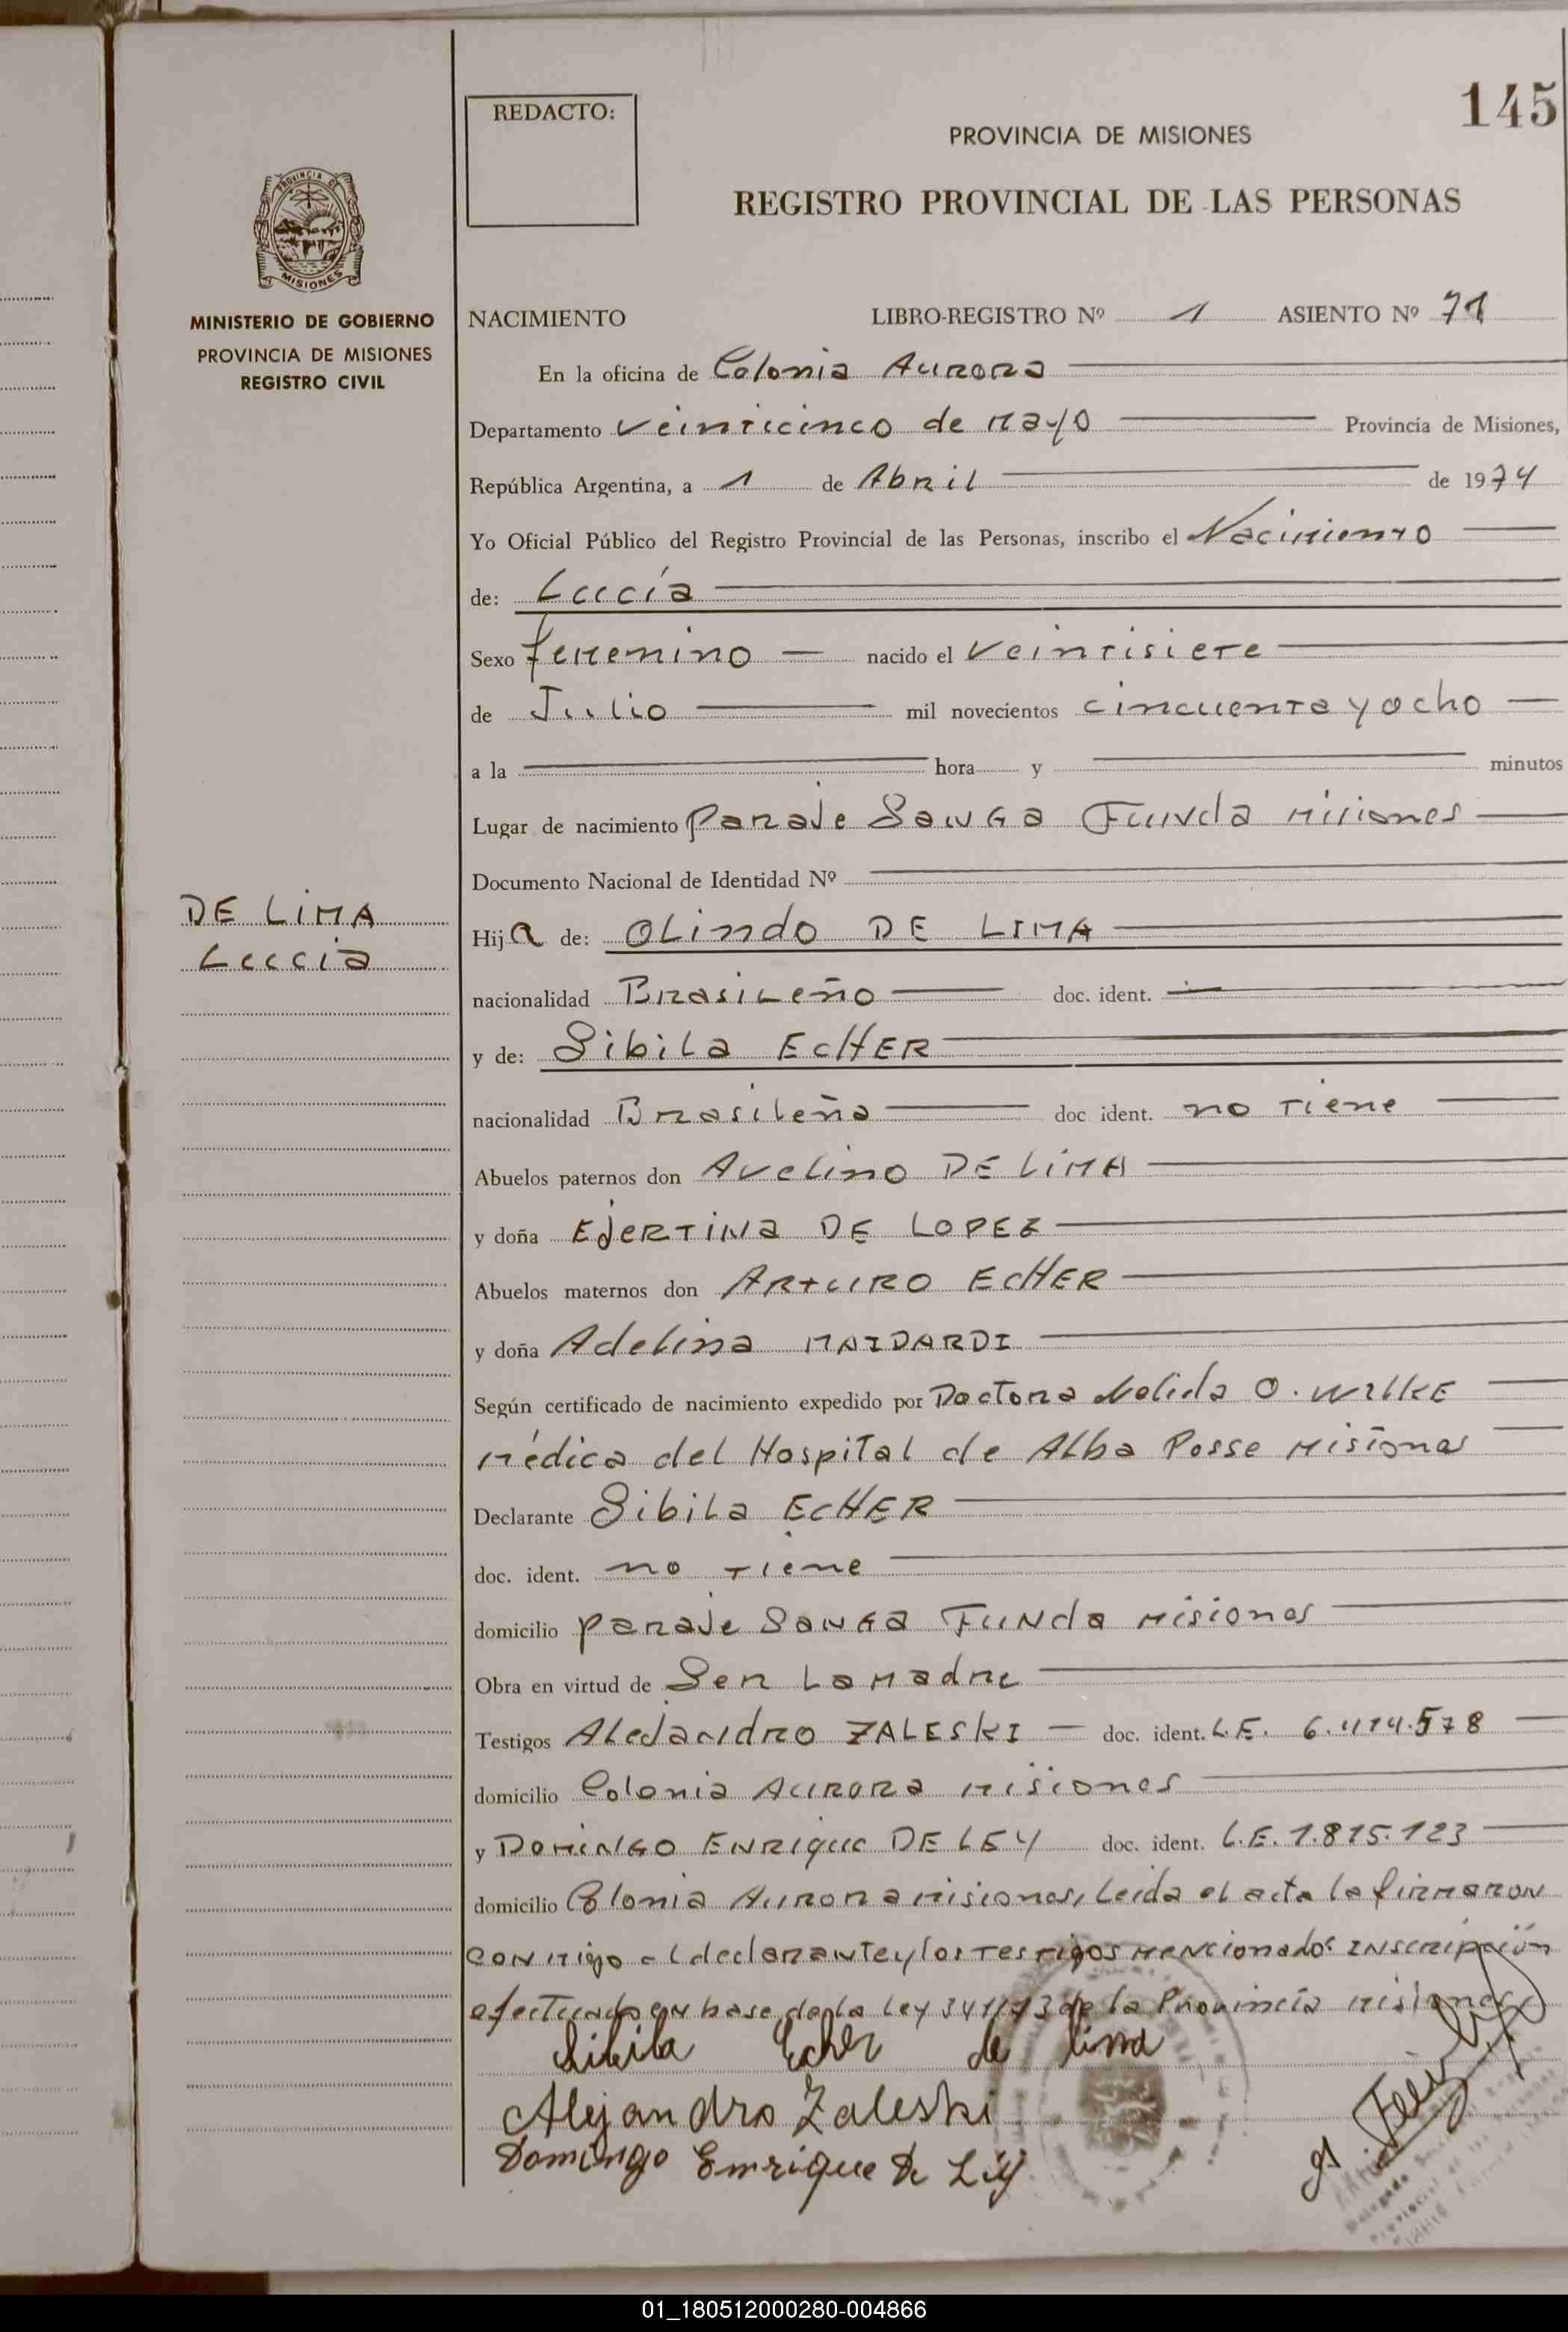 145
REDACTO:
PROVINCIA DE MISIONES
REGISTRO PROVINCIAL DE LAS PERSONAS
PROVINCIA DE
MISIONES
MINISTERIO DE GOBIERNO
PROVINCIA DE MISIONES
REGISTRO CIVIL
NACIMIENTO LIBRO-REGISTRO Nº 1 ASIENTO Nº 71
En la oficina de Colonia Aurora
Departamento veinticinco de Mayo Provincia de Misiones,
República Argentina, a 1 de Abril de 1974
Yo Oficial Público del Registro Provincial de las Personas, inscribo el Nacimiento
de: Lucía
Sexo femenino nacido el veintisiete
de Julio mil novecientos cincuenta y ocho
a la hora y minutos
Lugar de nacimiento Paraje Sanga Funda Misiones
Documento Nacional de Identidad Nº
DE LiMA
Lucia
Hija de: OLindo DE LIMA
nacionalidad Brasileño doc. ident.
y de: Sibila EcHER
nacionalidad Brasileña doc ident. no tiene
Abuelos paternos don Avelino DE LiMA
y doña EjERTiNa DE LOPEZ
Abuelos maternos don ARtuRO EcHER
y doña Adelina MAIDARDI
Según certificado de nacimiento expedido por Doctora Nelida O. WilkE
Médica del Hospital de Alba Posse Misiones
Declarante Sibila EcHER
doc. ident. no tiene
domicilio paraje Sanga Funda Misiones
Obra en virtud de Ser La Madre
Testigos Alejandro ZALESkI doc. ident. L.E. 6.414.578
domicilio Colonia Aurora Misiones
y DomiNGO ENRique DE LEY doc. ident. L.E. 1.815.123
domicilio Colonia Aurora Misiones, Leida el acta la firmaron
conmigo el declarante y los testigos mencionados INscripción
efectuada en base de la Ley 341/73 de la Provincia Misiones
Sibila Echer de lima
Alejandro Zaleski
Domingo Enrique De Ley
01_180512000280-004866